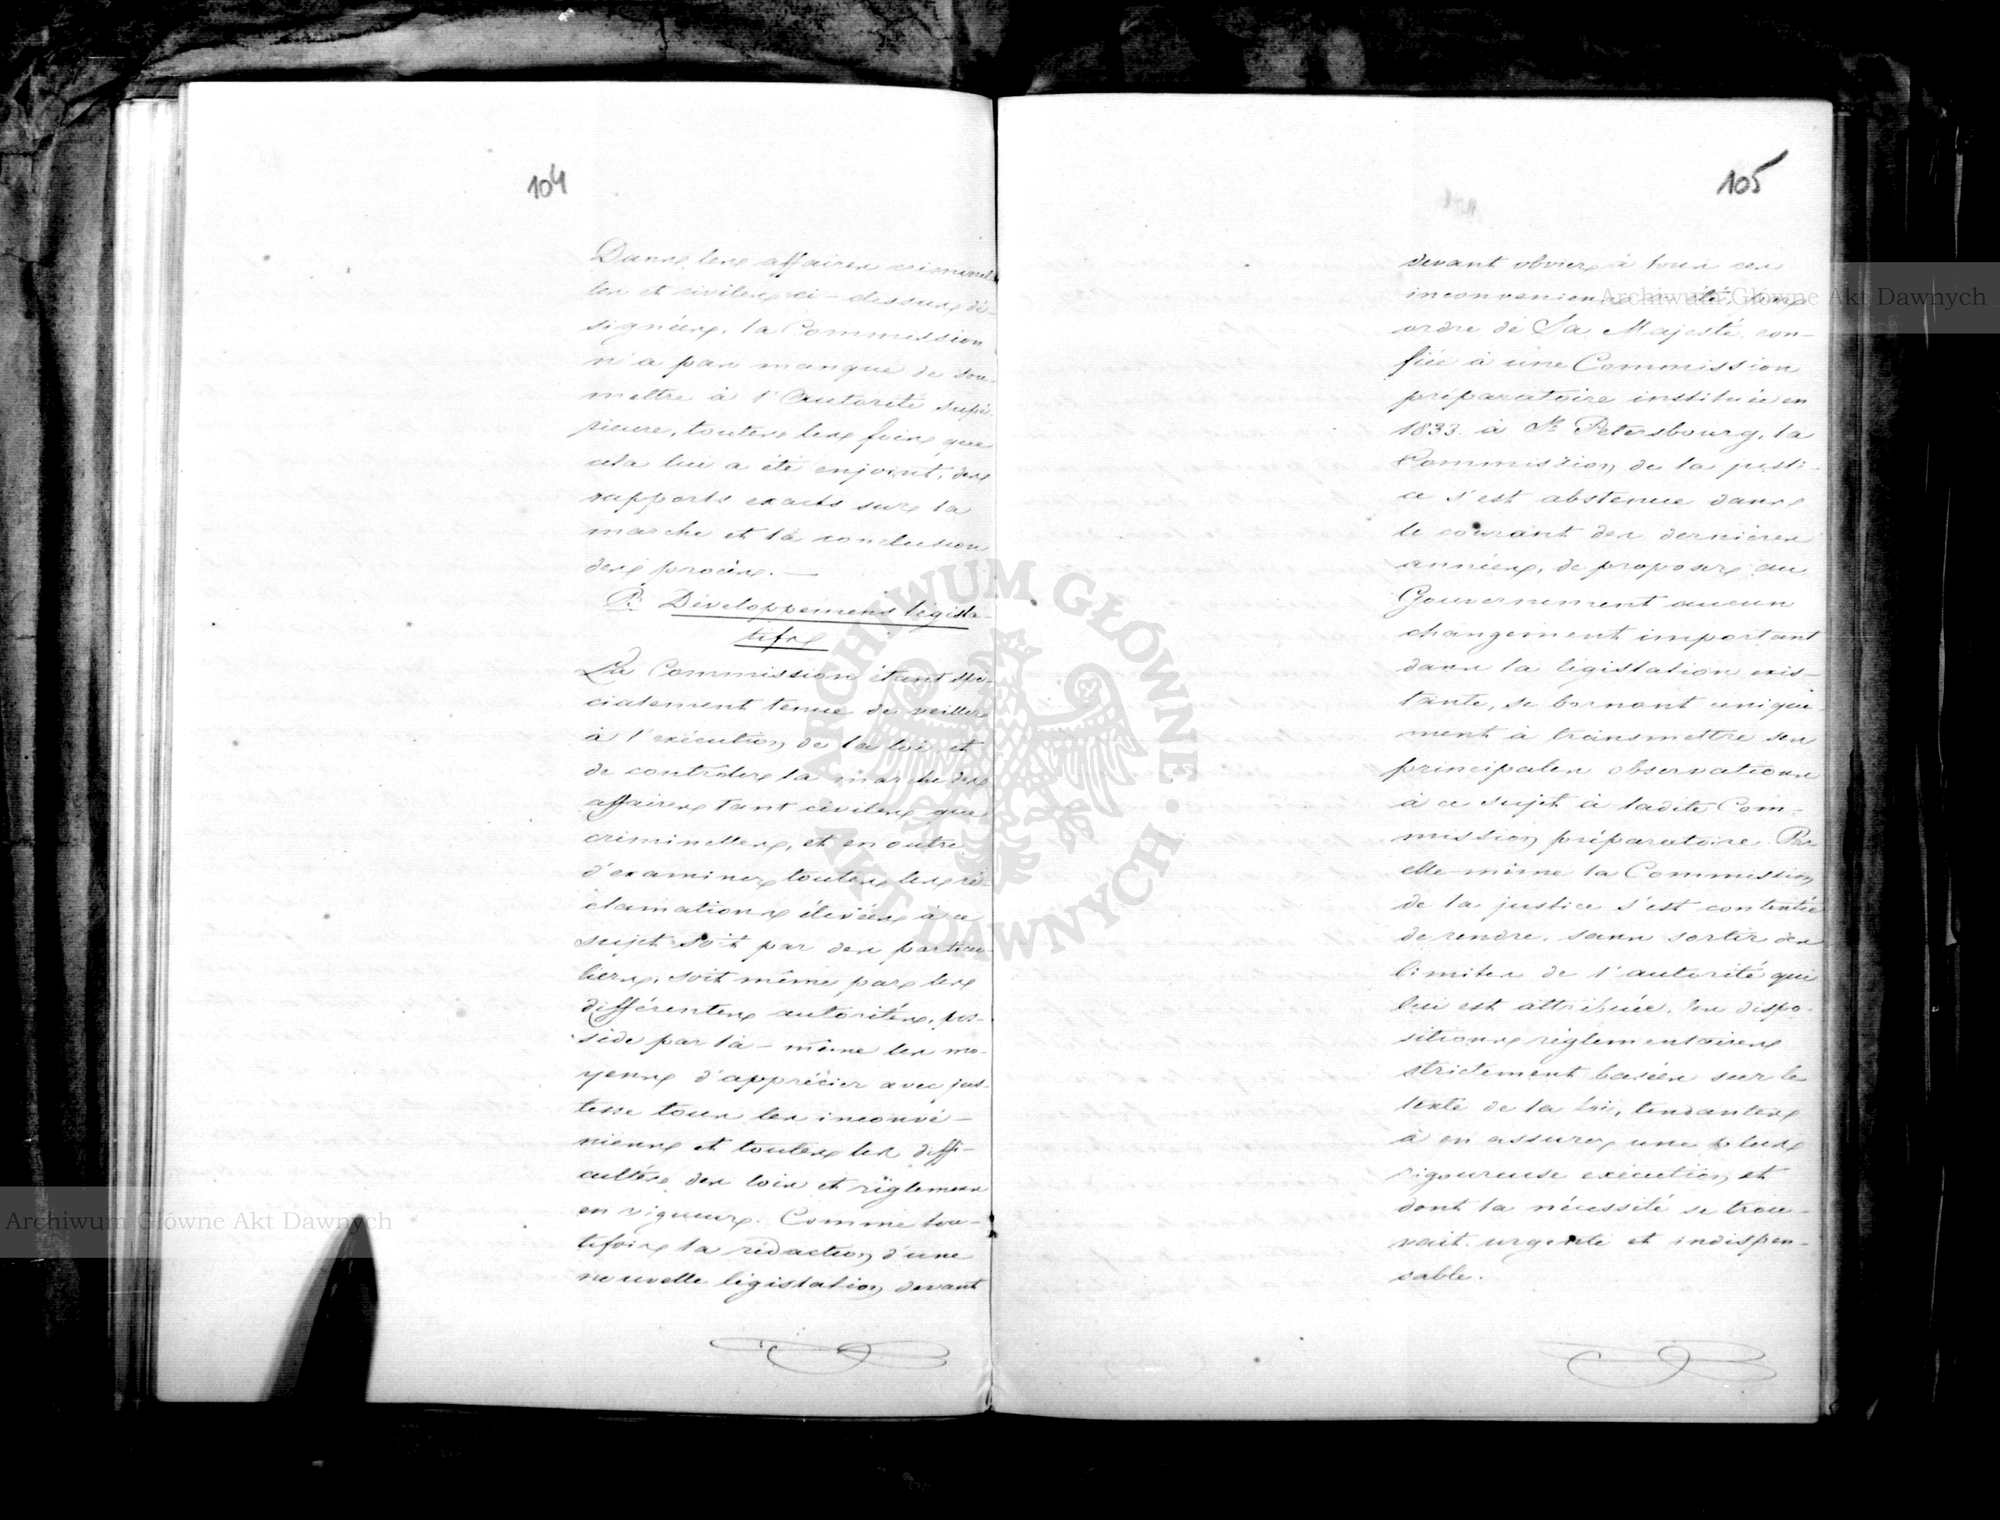 104
Dans les affaires criminel-
les et civiles ci-dessus dé-
signées, la Commission
n'a pas manqué de sou-
mettre à l'Autorité supé-
rieure, toutes les fois que
cela lui a été enjoint, des
rapports exacts sur la
marche et la conclusion
des procès. —
B. Développemens législa-
tifs
La Commission étant spé-
cialement tenue de veiller
à l'exécution de la loi et
de contrôler la marche des
affaires tant civiles que
criminelles, et en outre
d'examiner toutes les ré-
clamations élevées à ce
sujet soit par des particu-
liers, soit même par les
différentes autorités, pos-
sède par là-même les mo-
yens d'apprécier avec jus-
tesse tous les inconvé-
niens et toutes les diffi-
cultés des lois et règlemens
en vigueur. Comme tou-
tefois la rédaction d'une
nouvelle législation devant
105
devant obvier à tous ces
inconveniens a été, par
ordre de Sa Majesté, con-
fiée à une Commission
préparatoire instituée en
1833 à St. Petersbourg, la
Commission de la justi-
ce s'est abstenue dans
le courant des dernières
années, de proposer au
Gouvernement aucun
changement important
dans la législation exis-
tante, se bornant unique-
ment à transmettre ses
principales observations
à ce sujet à ladite Com-
mission préparatoire. Par
elle-même la Commission
de la justice s'est contentée
de rendre, sans sortir des
limites de l'autorité qui
lui est attribuée, les dispo-
sitions règlementaires
strictement basées sur le
texte de la loi, tendantes
à en assurer une plus
rigoureuse exécution et
dont la nécessité se trou-
vait urgente et indispen-
sable.
Archiwum Główne Akt Dawnych
Archiwum Główne Akt Dawnych
ARCHIWUM GŁÓWNE · AKT DAWNYCH ·